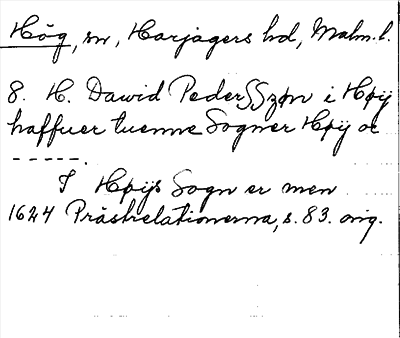 Hög, sn, Harjagers hd, Malm. l.
8. H. Dawid PederSSzøn i Høÿ
haffuer tuenne Sogner Høÿ oc
-----.
I Høÿs Sogn er men
1624 Prästrelationerna, s. 83. orig.